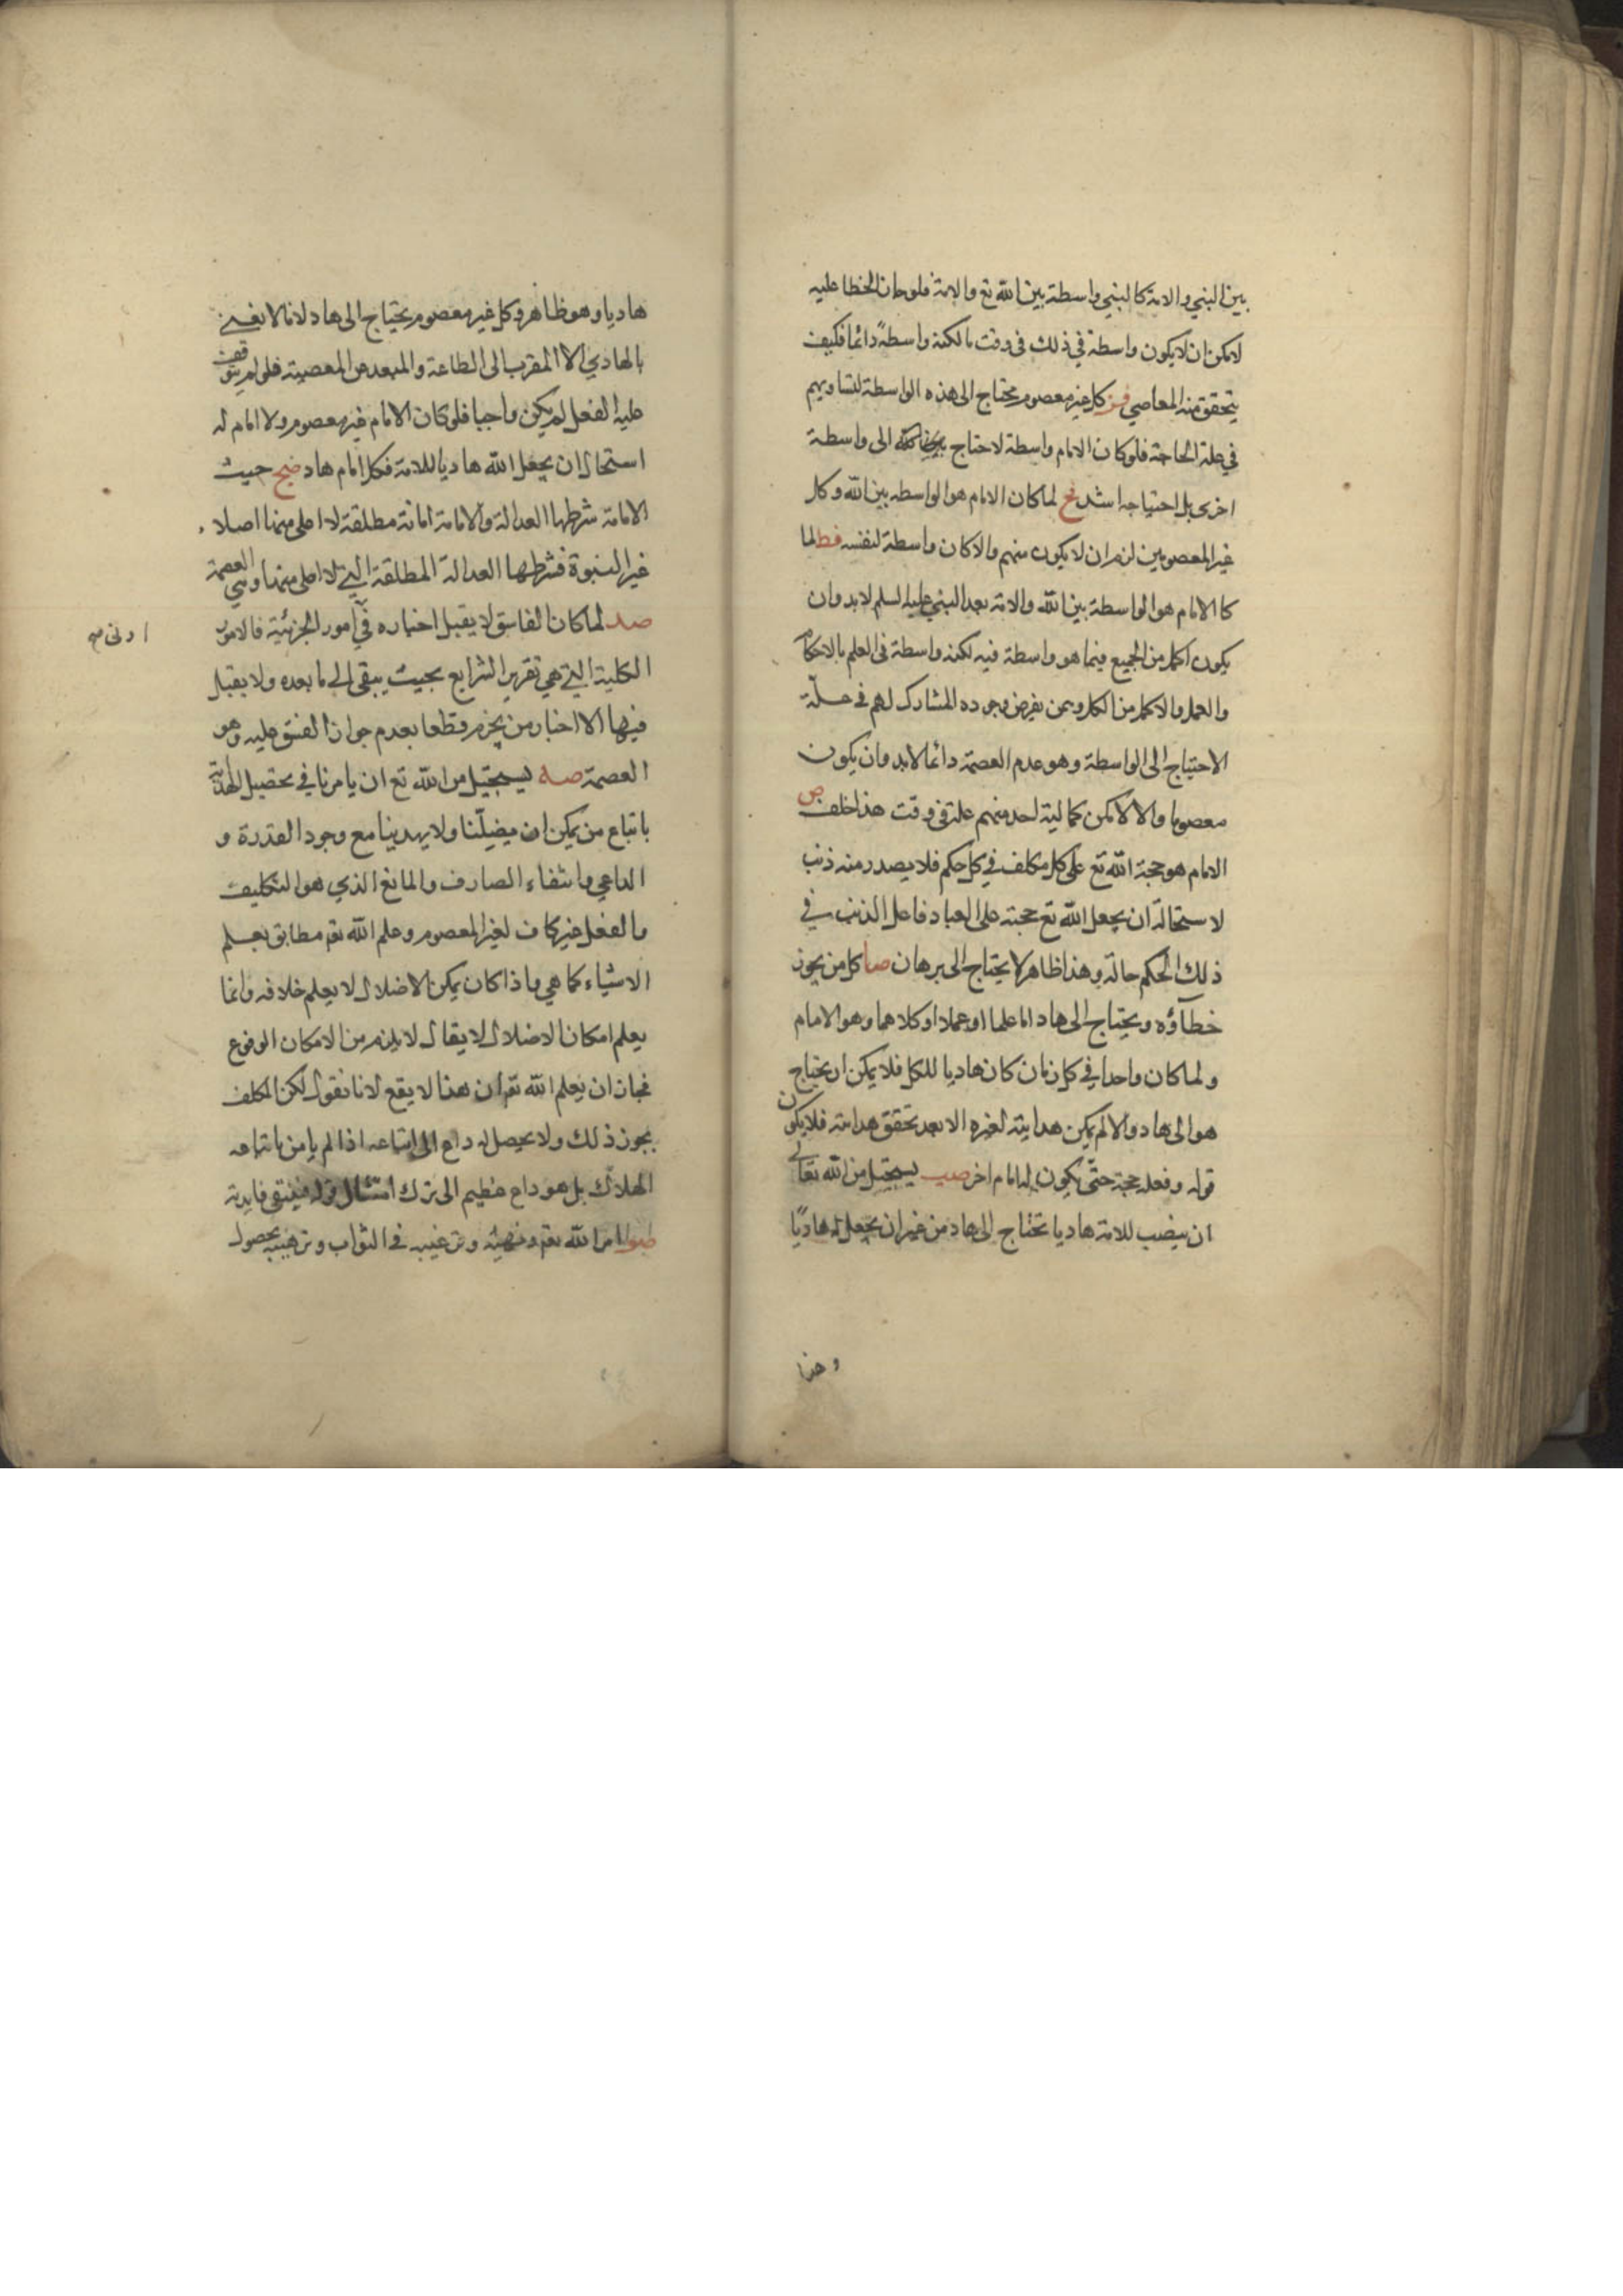 بين النبي والامة كالنبي واسطة بين الله تع والامة فلو جاز الخطا عليه
لامكن ان لا يكون واسطة في ذلك فى وقت ما لكنه واسطةً دائما فكيف
يتحقق منه المعاصي فز كل غير معصوم محتاج الى هذه الواسطة لتساويهم
في علة الحاجة فلو كان الامام واسطة لاحتاج الى واسطة
اخرى بل احتياجه اشد فح لما كان الامام هو الواسطه بين الله وكل
غير المعصومين لزم ان لا يكون منهم والا كان واسطة لنفسه فط لما
كا الامام هو الواسطة بين الله والامة بعد النبي عليه السلم لابد وان
يكون اكمل من الجميع فيما هو واسطة فيه لكنه واسطة فى العلم بالاحكام
والعمل والاكمل من الكل وممن يفرض وجوده المشارك لهم في علّة
الاحتياج الى الواسطة وهو عدم العصمة دائما لابد وان يكون
معصوما والا لامكن كمالية احد منهم علته في وقت هذا خلف ص
الامام هو حجة الله تع على كل مكلف في كل حكم فلا يصدر منه ذنب
لاستحالة ان يجعل الله تع حجته على العباد فاعل الذنب في
ذلك الحكم حالة وهذا ظاهر لا يحتاج الى برهان صا كل من يجوز
خطاؤه ويحتاج الى هاد اما علما او عملا او كلاهما وهو الامام
ولما كان واحدا في كل زمان كان هاديا للكل فلا يمكن ان يحتاج
هو الى هاد والا لم يمكن هدايته لغيره الا بعد تحقق هدايته فلا يكون
قوله وفعله حجة حتّى يكون له امام اخر صب يستحيل من الله تعالى
ان ينصب للامة هاديا تحتاج الى هاد من غير ان يجعل له هاديًا
وهذا
هاديا وهو ظاهر وكل غير معصوم يحتاج الى هاد لانا لا نعني
بالهادي الا المقرب الى الطاعة والمبعد عن المعصية فلو لم يتوقف
عليه الفعل لم يكن واجبا فلو كان الامام غير معصوم ولا امام له
استحال ان يجعل الله هاديا للامة فكل امام هاد صج حيث
الامامة شرطها العدالة والامامة امانة مطلقة لا اعلى منها اصلا
غير النبوة فشرطها العدالة المطلقة التي لا اعلى منها وهي العصمة
صد لما كان الفاسق لا يقبل اخباره في امور الجزئية فالامور
الكلية التي هي تقرير الشرايع بحيث يبقى الى ما بعده ولا يقبل
فيها الا اخبار من يجزم قطعا بعدم جواز الفسق عليه وهو
العصمة صه يستحيل من الله تع ان يامرنا في تحصيل الهداية
باتباع من يمكن ان يضلّنا ولا يهدينا مع وجود القدرة و
الداعي وانتفاء الصارف والمانع الذي هو التكليف
والفعل غير كاف لغير المعصوم وعلم الله تعم مطابق بعلم
الاشياء كما هي واذا كان يمكن الاضلال لا يعلم خلافه وانما
يعلم امكان الاضلال لا يقال لا يلزم من الامكان الوقوع
فجاز ان يعلم الله تعم ان هذا لا يقع لانا نقول لكن المكلف
يجوز ذلك ولا يحصل له داع الى اتباعه اذا لم يامن باتباعه
الهلاك بل هو داع عظيم الى ترك امتثال قوله فينتفي فايدته
صو امر الله تعم ونهيه وترغيبه في الثواب وترهيبه بحصول